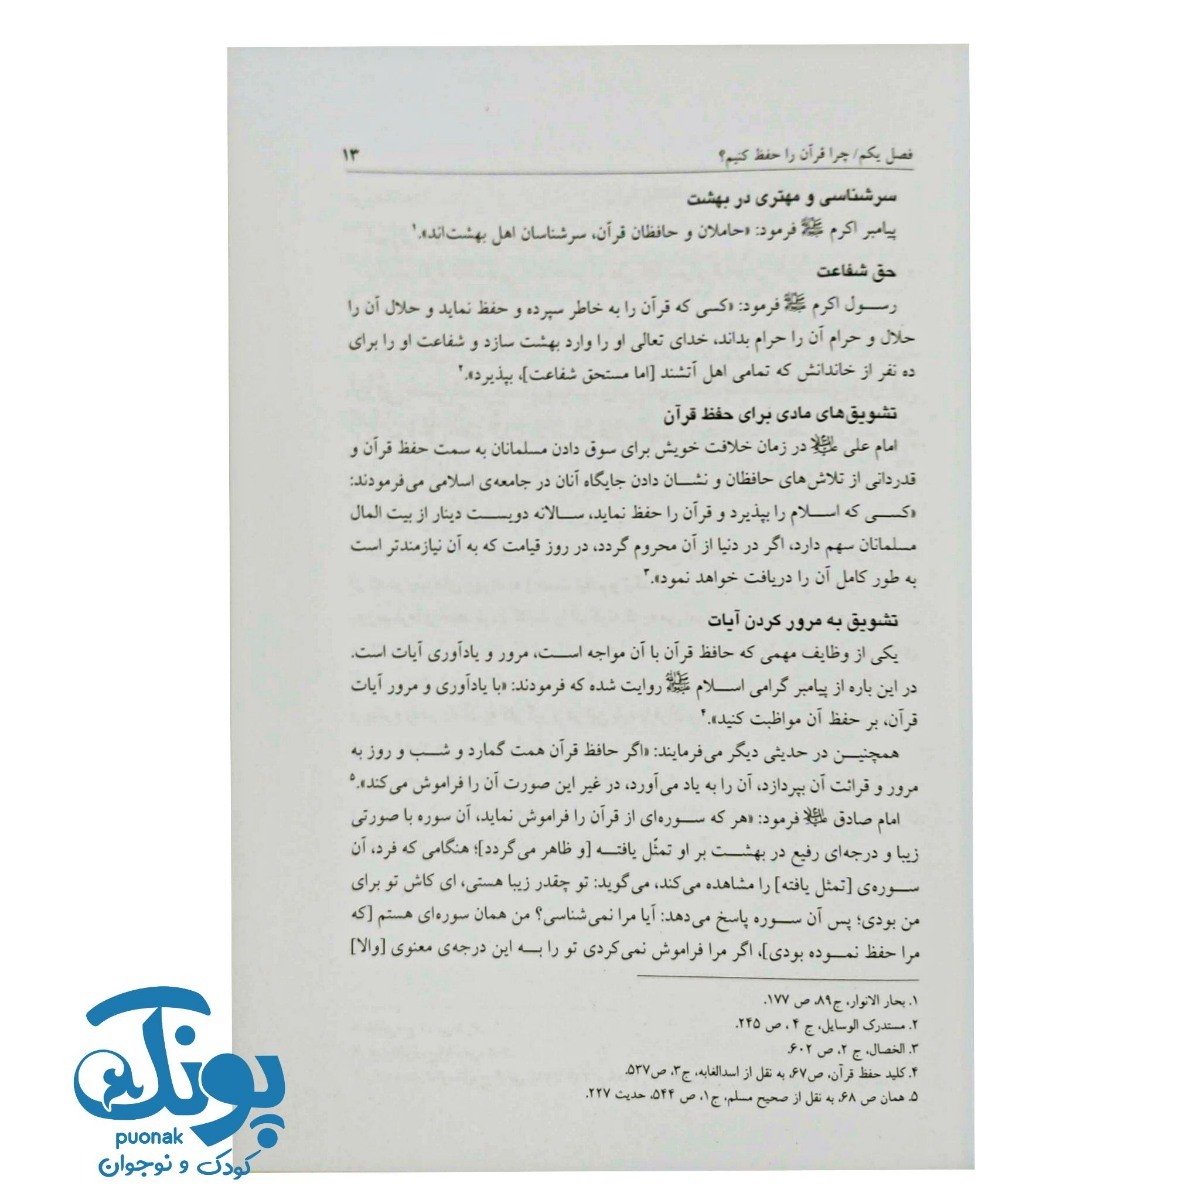 فصل یکم/ چرا قرآن را حفظ کنیم؟ ۱۳
سرشناسی و مهتری در بهشت
پیامبر اکرم ﷺ فرمود: «حاملان و حافظان قرآن، سرشناسان اهل بهشت‌اند».۱
حق شفاعت
رسول اکرم ﷺ فرمود: «کسی که قرآن را به خاطر سپرده و حفظ نماید و حلال آن را
حلال و حرام آن را حرام بداند، خدای تعالی او را وارد بهشت سازد و شفاعت او را برای
ده نفر از خاندانش که تمامی اهل آتشند [اما مستحق شفاعت]، بپذیرد».۲
تشویق‌های مادی برای حفظ قرآن
امام علی علیه‌السلام در زمان خلافت خویش برای سوق دادن مسلمانان به سمت حفظ قرآن و
قدردانی از تلاش‌های حافظان و نشان دادن جایگاه آنان در جامعه‌ی اسلامی می‌فرمودند:
«کسی که اسلام را بپذیرد و قرآن را حفظ نماید، سالانه دویست دینار از بیت المال
مسلمانان سهم دارد، اگر در دنیا از آن محروم گردد، در روز قیامت که به آن نیازمندتر است
به طور کامل آن را دریافت خواهد نمود».۳
تشویق به مرور کردن آیات
یکی از وظایف مهمی که حافظ قرآن با آن مواجه است، مرور و یادآوری آیات است.
در این باره از پیامبر گرامی اسلام ﷺ روایت شده که فرمودند: «با یادآوری و مرور آیات
قرآن، بر حفظ آن مواظبت کنید».۴
همچنین در حدیثی دیگر می‌فرمایند: «اگر حافظ قرآن همت گمارد و شب و روز به
مرور و قرائت آن بپردازد، آن را به یاد می‌آورد، در غیر این صورت آن را فراموش می‌کند».۵
امام صادق علیه‌السلام فرمود: «هر که سوره‌ای از قرآن را فراموش نماید، آن سوره با صورتی
زیبا و درجه‌ای رفیع در بهشت بر او تمثّل یافته [و ظاهر می‌گردد]؛ هنگامی که فرد، آن
سوره‌ی [تمثل یافته] را مشاهده می‌کند، می‌گوید: تو چقدر زیبا هستی، ای کاش تو برای
من بودی؛ پس آن سوره پاسخ می‌دهد: آیا مرا نمی‌شناسی؟ من همان سوره‌ای هستم [که
مرا حفظ نموده بودی]، اگر مرا فراموش نمی‌کردی تو را به این درجه‌ی معنوی [والا]
۱. بحار الانوار، ج۸۹، ص ۱۷۷.
۲. مستدرک الوسایل، ج ۴ ، ص ۲۴۵.
۳. الخصال، ج ۲، ص ۶۰۲.
۴. کلید حفظ قرآن، ص۶۷، به نقل از اسدالغابه، ج۳، ص۵۳۷.
۵. همان ص ۶۸، به نقل از صحیح مسلم، ج۱، ص ۵۴۴، حدیث ۲۲۷.
پونک
puonak
کودک و نوجوان